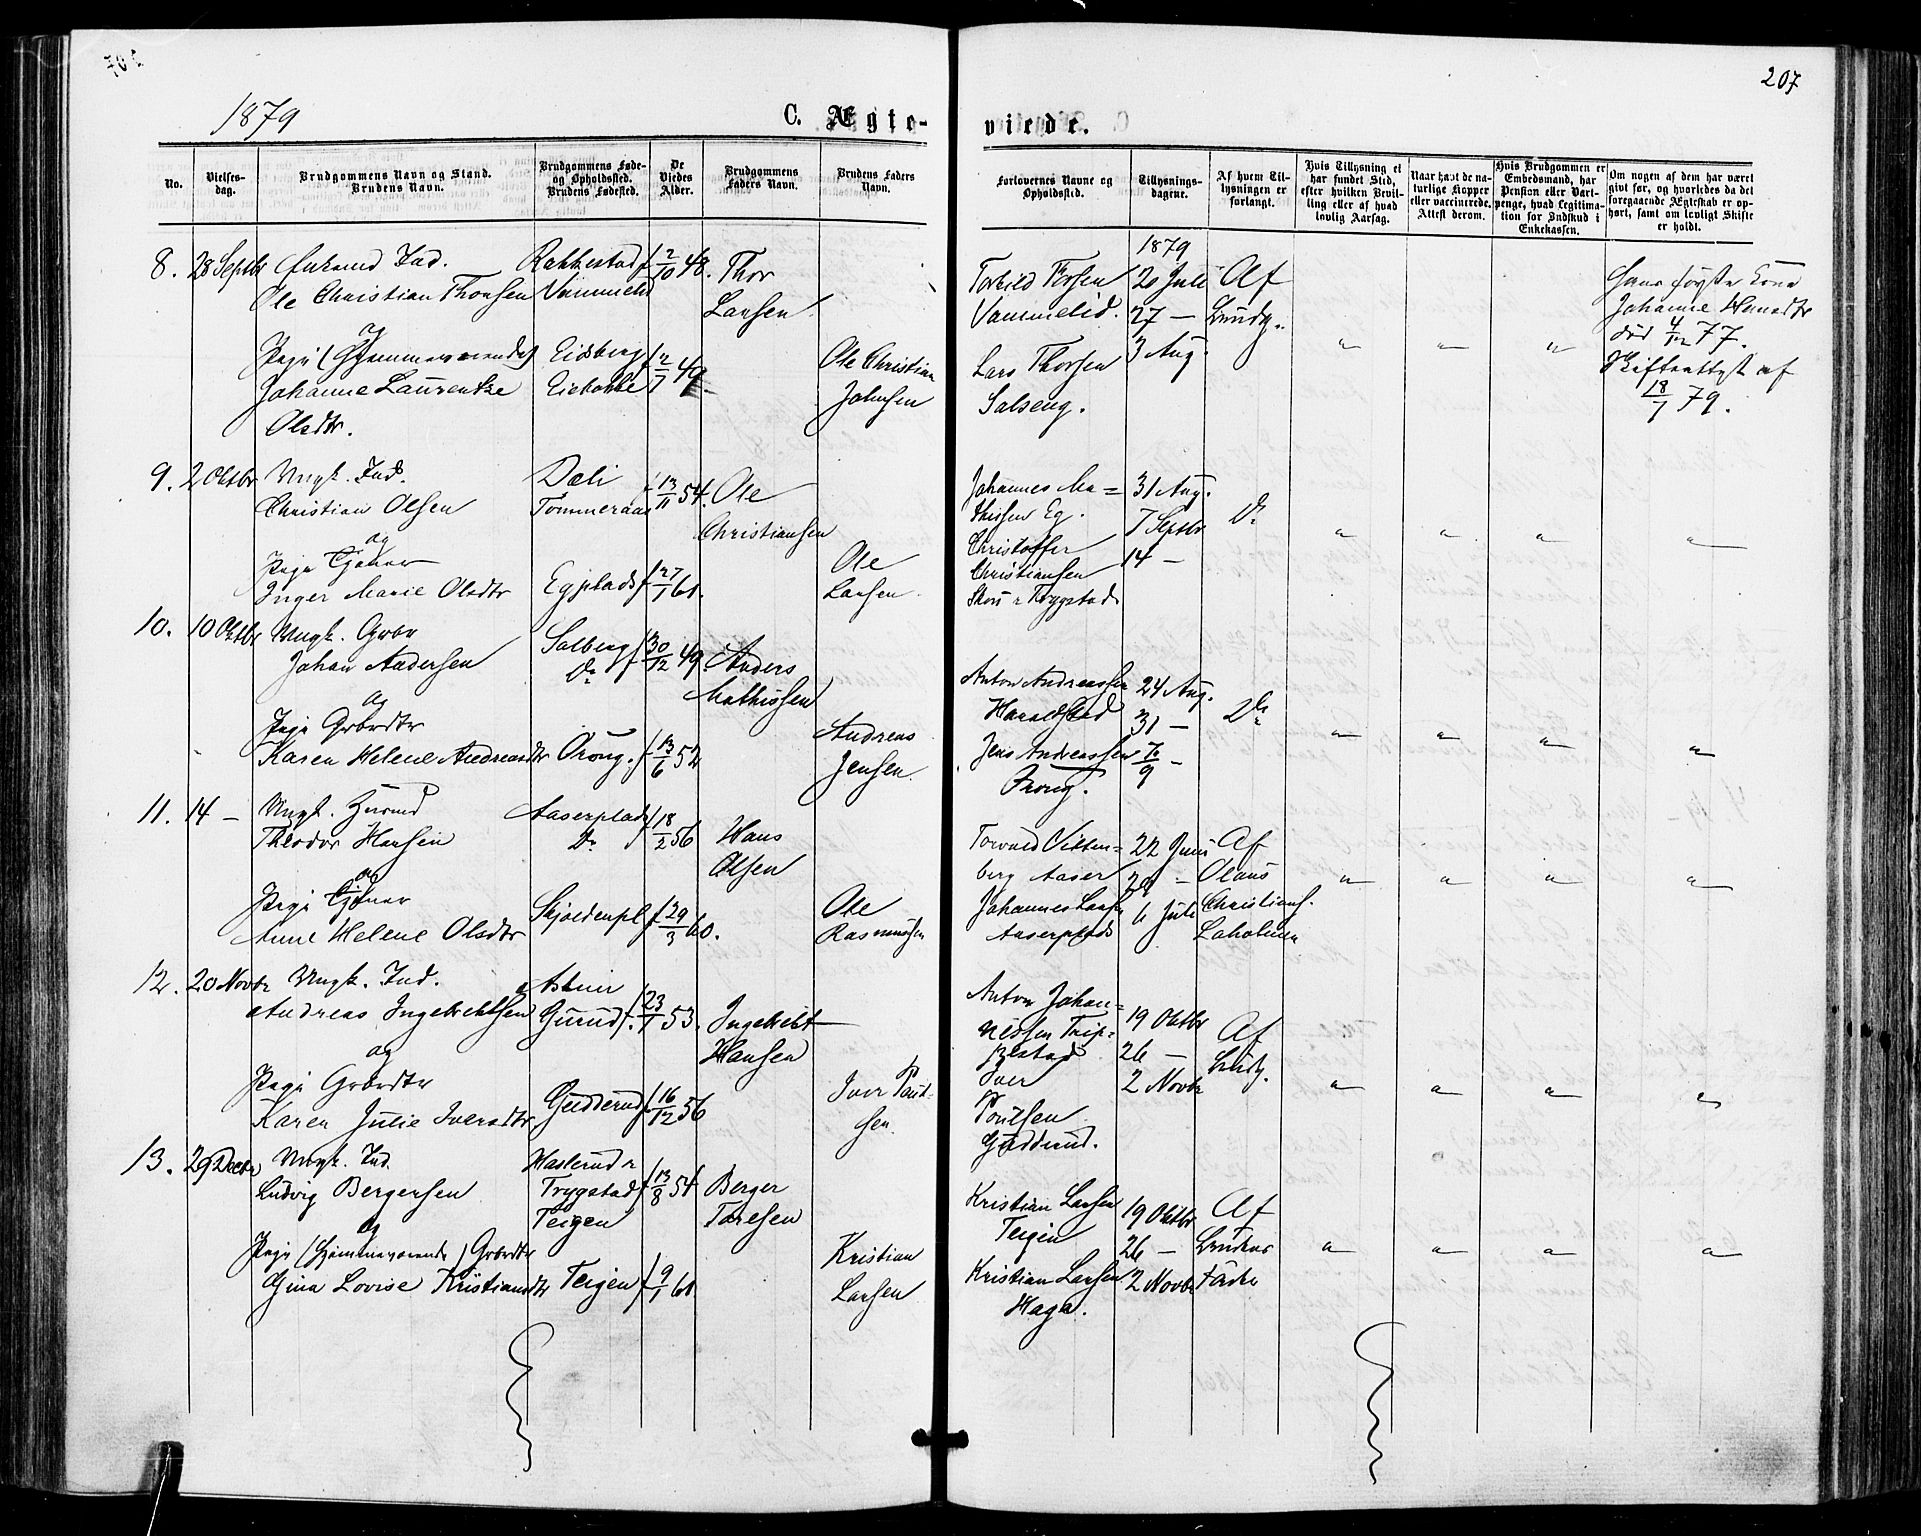 207
1879
C. Ægte-
viede.
No.
Vielses-
dag.
Brudgommens Navn og Stand.
Brudens Navn.
Brudgommens Føde-
og Opholdssted.
Brudens Fødested.
De
Viedes
Alder.
Brudgommens
Faders Navn.
Brudens Faders
Navn.
Forlovernes Navne og
Opholdssted.
Tillysnings-
dagene.
Af hvem Til-
lysningen er
forlangt.
Hvis Tillysning ei
har fundet Sted,
efter hvilken Bevil-
ling eller af hvad
lovlig Aarsag.
Naar havt de na-
turlige Kopper
eller vaccinerede.
Attest derom.
Hvis Brudgommen er
Embedsmand, har
Pension eller Vart-
penge, hvad Legitima-
tion for Indskud i
Enkekassen.
Om nogen af dem har været
givt før, og hvorledes da det
foregaaende Ægteskab er op-
hørt, samt om lovligt Skifte
er holdt.
8. 28 Septbr Enkemd Ind.
Ole Christian Thorsen
og
Pige (Hjemmeværende)
Johanne Laurentze
Olsdtr.
Rakkestad
Vammelid
Eidsberg
f 2/10 48.
f 2/7 49
Thor
Larsen.
Ole Christian
Johnsen
Torkild Torsen
Vammelid.
Lars Thorsen
Salseng.
1879
20 Juli
27 —
3 Aug.
Af
Brudg.
Hans første Kone
Johanne
død 4/12 77.
Skifteattest af
18/7 79.
9. 2 Oktbr Ungk. Ind.
Christian Olsen
og
Pige Tjener
Inger Marie Olsdtr
Dæli
Tommeraas
Egplads
f 13/11 54.
f 27/1 60.
Ole
Christiansen
Ole
Larsen.
Johannes Ma=
thisen Eg.
Christoffer
Christiansen
Trygstad
31 Aug.
7 Septbr
14 —
Do
10. 10 Oktbr Ungk. Grbr
Johan Andersen
og
Pige Grbrdtr
Karen Helene Andreasdtr
Solberg
Do
Orong.
f 30/12 49.
f 13/6 52
Anders
Mathissen
Andreas
Jensen.
Anton Andreassen
Haraldstad
Jens Andreassen
Orong.
24 Aug.
31 —
7/9 —
Do
11. 14 — Ungk. Husmd
Theodor Hansen
og
Pige Tjener
Anne Helene Olsdtr
Aaserplads
Do
Skjoldenpl.
f 18/2 56
f 29/3 60.
Hans
Olsen
Ole
Rasmussen
Torvald Vitten=
berg Aaser
Johannes Larsen
Aaserplads
22 Juni
29 —
6 Juli
Af
Olaus
Christians.
Laholmen
12. 20 Novbr Ungk. Ind.
Andreas Ingebrechtsen
og
Pige Grbrdtr
Karen Julie Iversdtr
Askim
Gurud.
Gudderud
f 23/1 53.
f 16/12 56
Ingebrecht
Hansen
Iver Poul-
sen.
Anton Johan=
nessen Trip=
pestad
Iver
Poulsen
Gudderud.
19 Oktbr
26 —
2 Novbr
Af
Brudg.
13. 29 Decbr Ungk. Ind.
Ludvig Bergersen
og
Pige (Hjemmeværende) Grbrdtr
Gina Lovise Kristiansdtr
Haslerud i
Trygstad
Teigen
Teigen
f 13/8 54
f 9/1 60
Berger
Toresen
Kristian
Larsen
Kristian Larsen
Teigen
Kristian Larsen
Haga.
19 Oktbr
26 —
2 Novbr
Af
Brudens
Fader